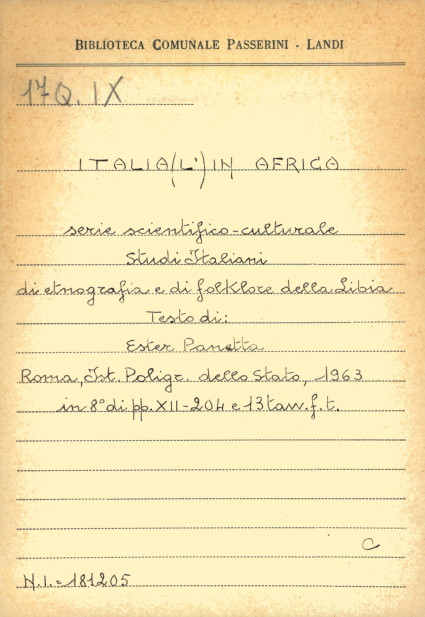 BIBLIOTECA COMUNALE PASSERINI - LANDI
17Q. IX
ITALIA (L') IN AFRICA
serie scientifico-culturale
Studi Italiani
di etnografia e di folklore della Libia
Testo di:
Ester Panetta
Roma, Ist. Poligr. dello Stato, 1963
in 8° di pp. XII-204 e 13 tavv. f. t.
C
N.I. = 181205